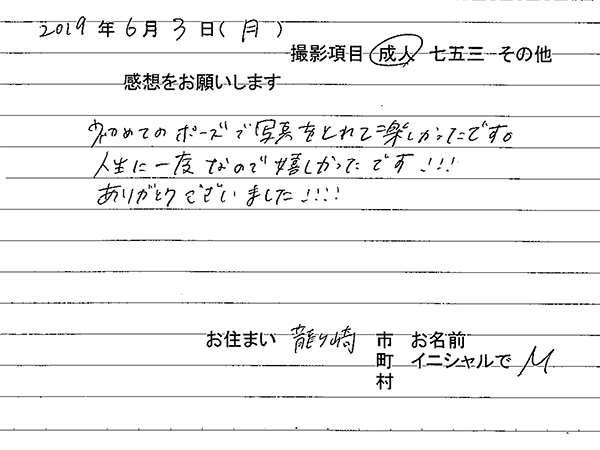 2019年6月3日(月)
撮影項目 成人 七五三 その他
感想をお願いします
初めてのポーズで写真をとれて楽しかったです。
人生に一度なので嬉しかったです!!!
ありがとうございました!!!!
お住まい 龍ヶ崎 市 お名前
町 イニシャルで M
村